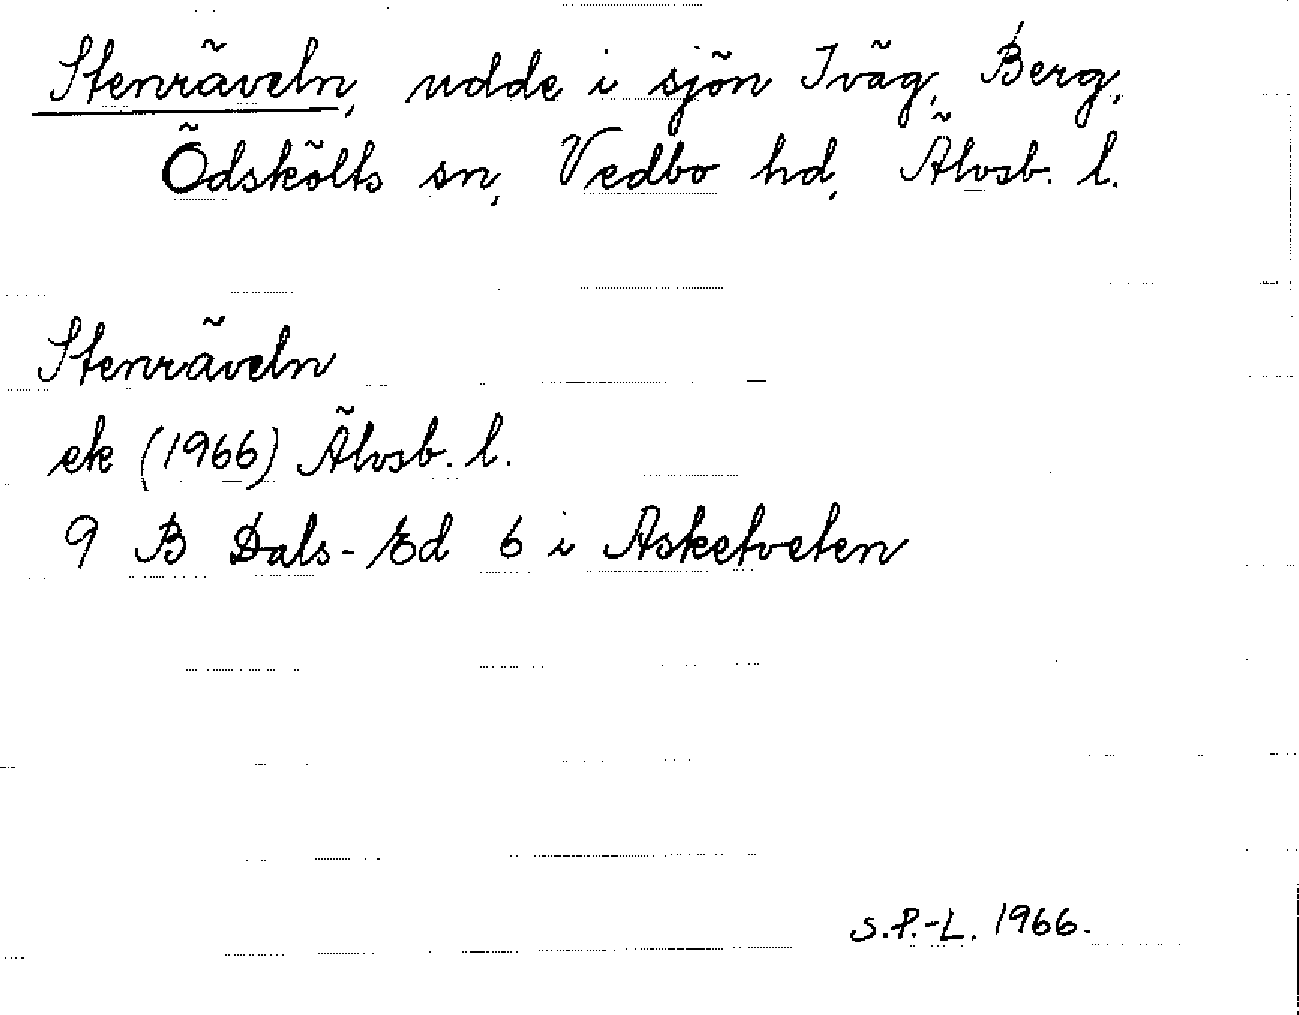 Stenräveln, udde i sjön Iväg, Berg,
Ödskölts sn, Vedbo hd, Älvsb. l.
Stenräveln
ek (1966) Älvsb. l.
9 B Dals-Ed 6 i Asketveten
S.P.-L. 1966.